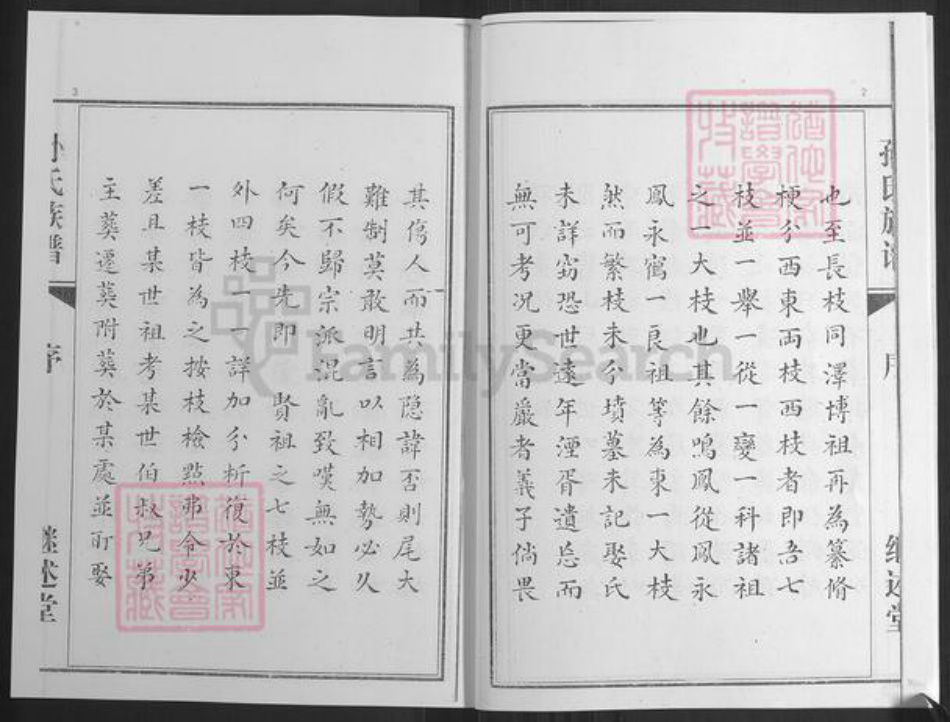 2
孫氏族譜
序
继述堂
也至長枝同澤博祖再為纂脩
梗兮西東両枝西枝者即吾七
枝並一舉一從一變一科諸祖
之一大枝也其餘鳴鳳從鳳永
鳳永鶴一良祖等為東一大枝
然而繁枝未分墳墓未記娶氏
未詳窃恐世遠年湮胥遺忘而
無可考况更當嚴者義子倘畏
其傷人而共為隐諱否則尾大
難制莫敢明言以相加勢必久
假不歸宗派混亂致嘆無如之
何矣今先即 賢祖之七枝並
外四枝一一詳加分析復於東
一枝皆為之按枝檢點弗令少
差且某世祖考某世伯叔兄弟
主葬遷葬附葬於某處並所娶
3
孙氏族譜
序
继述堂
FamilySearch